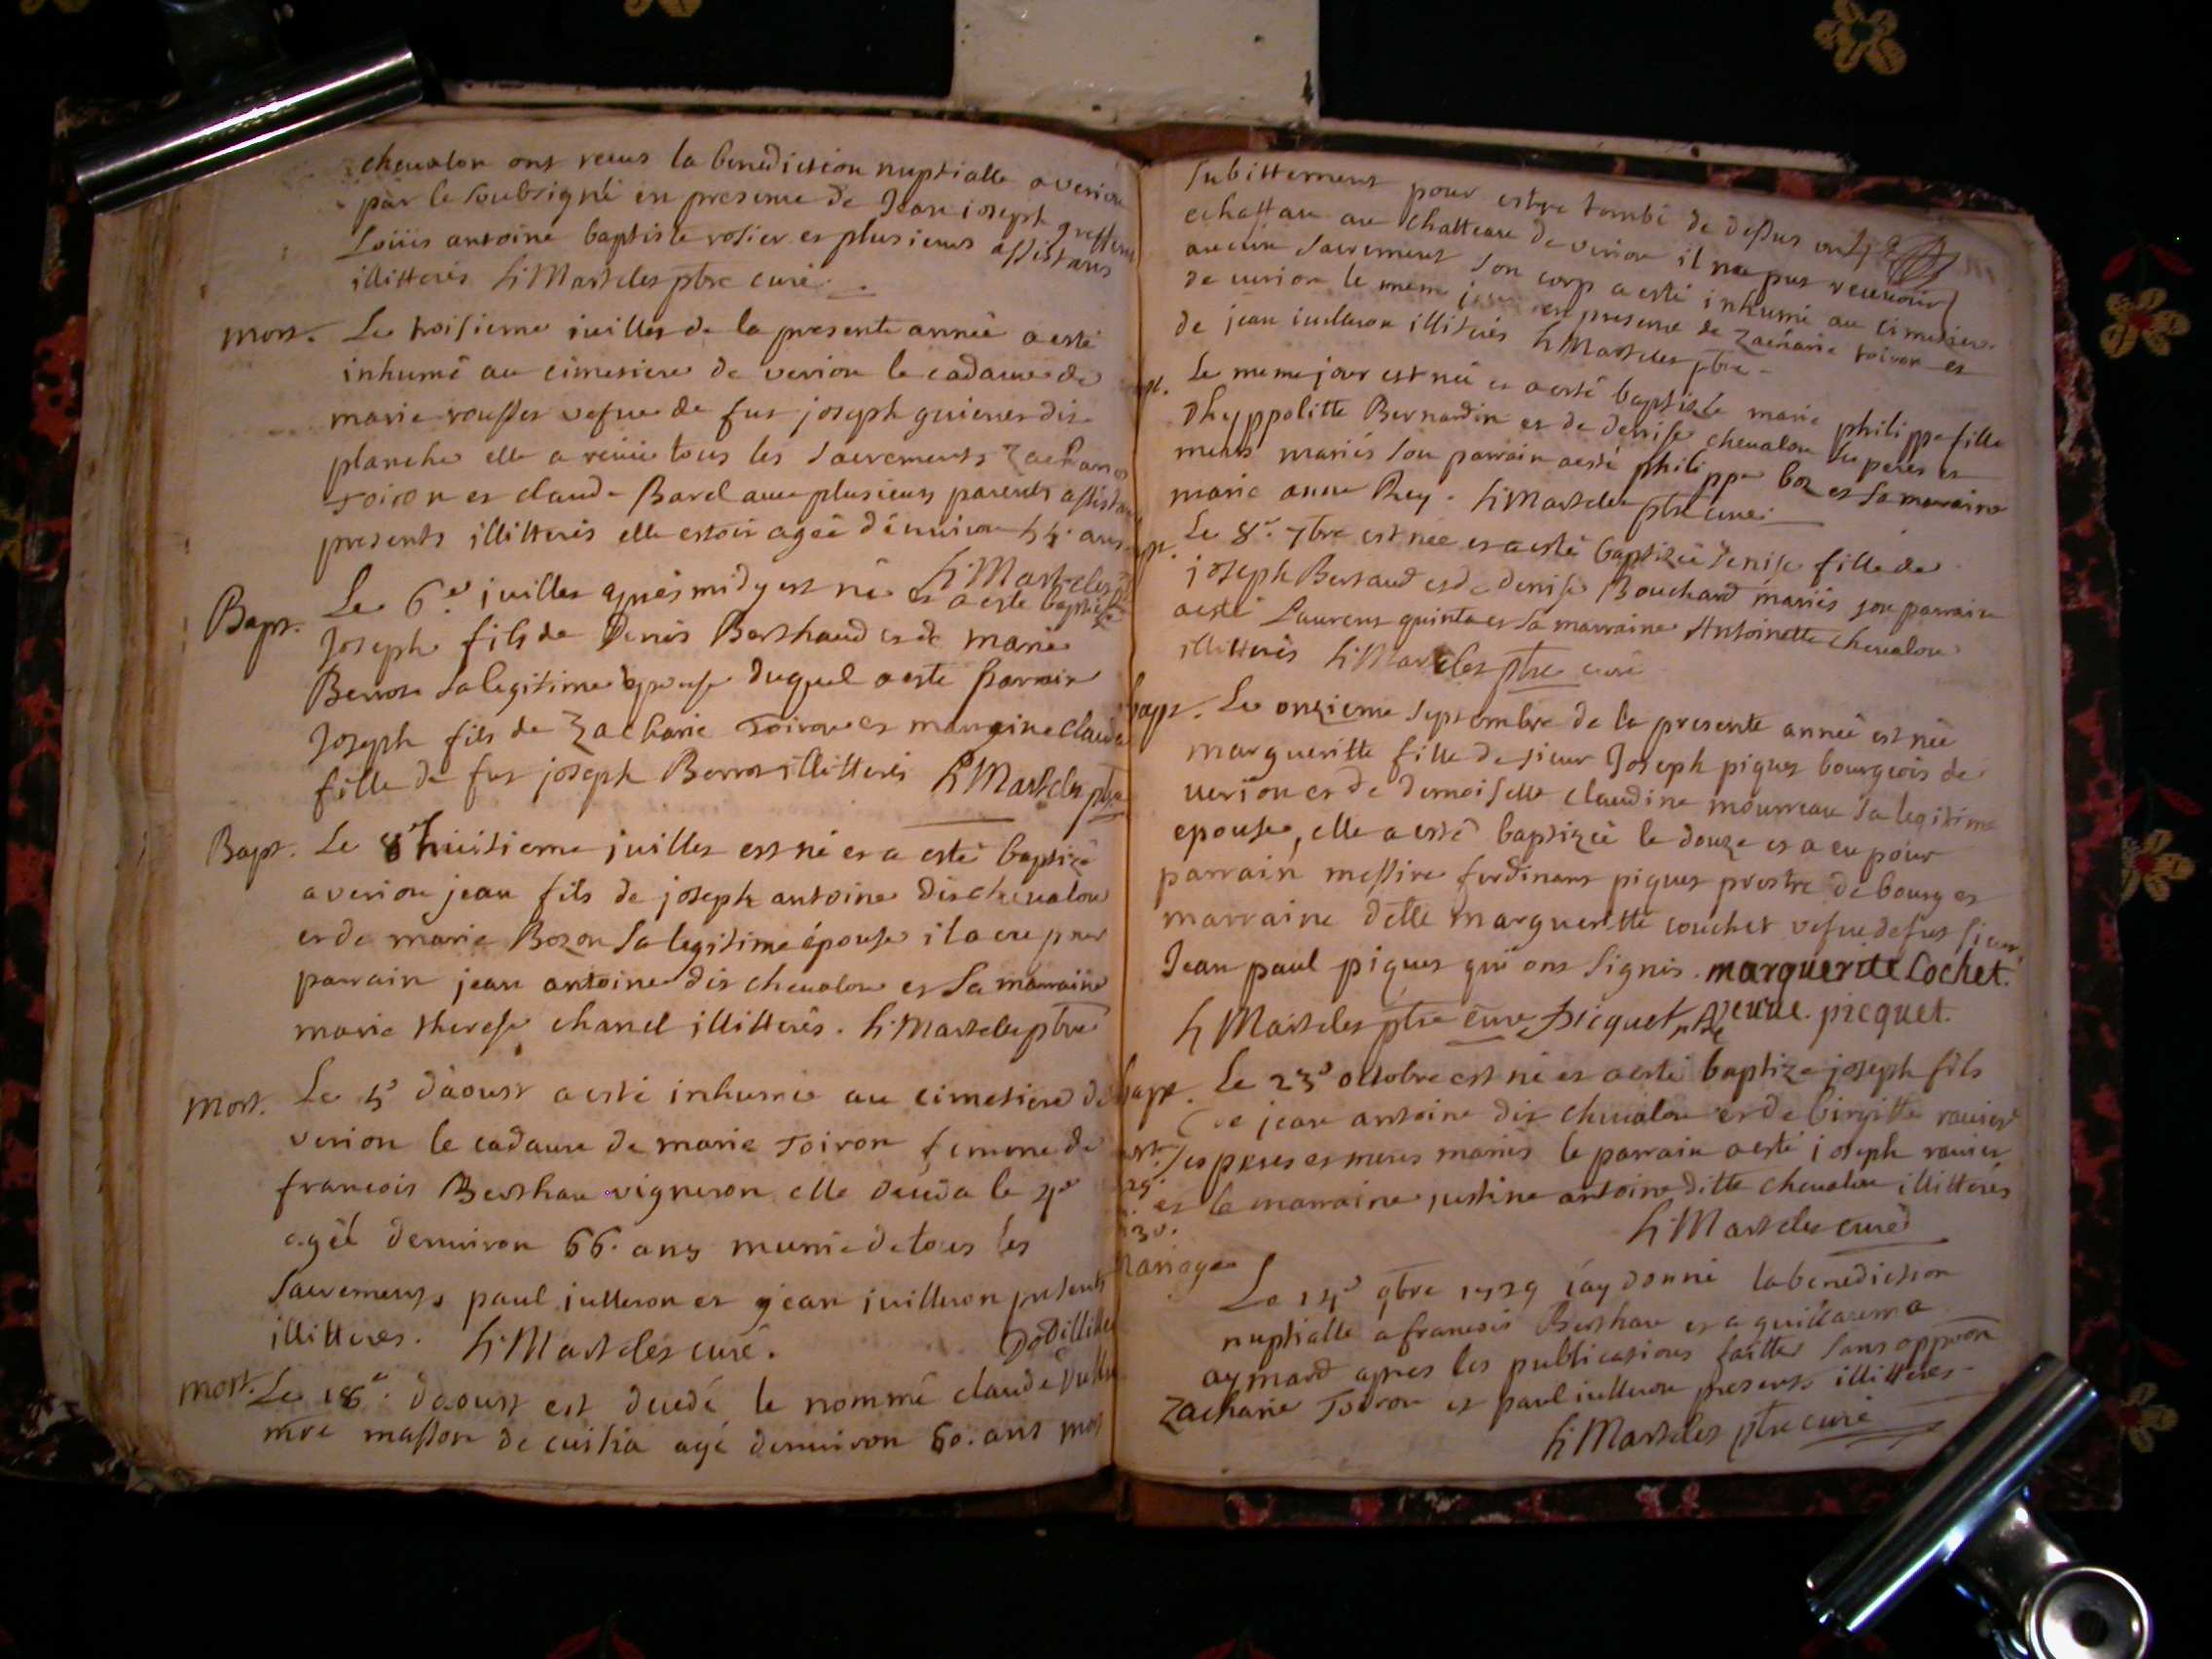 chevalon ont receus la benediction nuptialle a verion
par le soubsigné en presence de Jean joseph greffem
Loüis antoine baptiste rosier et plusieurs assistans
illitterés h: Marteles pbre curé.
mort. Le troisieme juillet de la presente année a esté
inhumé au cimetiere de verion le cadavre de
marie rousset vefve de fut joseph guienet dit
planche elle a reciue tous les sacrements Zacharie
Toiron et claude Barel avec plusieurs parents assistans
presents illitterés elle estoit agée d'environ ans
h: Marteles
Bapt. Le 6e. juillet aprés midy est né et a esté baptisé
Joseph fils de Denis Berthaud et de marie
Berrot sa legitime épouse duquel a esté parrain
Joseph fils de Zacharie Toiron et marraine clauda
fille de fut joseph Berrot illitterés h: Marteles pbre
Bapt. Le huitieme juillet est né et a esté baptizé
a verion jean fils de joseph antoine dit chevalon
et de marie Bozon sa legitime épouse il a eu pour
parrain jean antoine dit chevalon et sa marraine
marie therese chanel illitterés. h: Marteles pbre
Mort. Le 5e d'aoust a esté inhumée au cimetiere de
verion le cadavre de marie Toiron femme de
francois Berthau vigneron elle deceda le 4e
agéé denviron 66. ans munie de tous les
sacrements paul juilleron et jean juilleron presents
illitteres. h: Marteles curé.
mort. Le 18e. daoust est decedé le nommé claude
mre masson de cuisia agé denviron 60. ans mort
subittement pour estre tombé de dessus un
echaffau au chatteau de verion il ne put recevoir
aucun sacrement son corp a esté inhumé au cimetiere
de verion le meme jour en presence de Zacharie toiron et
de jean juilleron illiterés h: Marteles pbre
bapt. Le meme jour est née et a esté baptisée marie philippe fille
dhyppolitte Bernardin et de denise chevalon ses peres et
meres mariés son parrain a esté philippe boz et sa marraine
marie anne Rey. h: Marteles pbre curé.
bapt. Le 8e. 7bre est née et a esté baptizée denise fille de
joseph Bertaud et de denise Bouchard mariés son parrain
a esté Laurent quinta et sa marraine Antoinette chevalon
illitterés h: Marteles pbre curé
bapt. Le onzieme septembre de la presente année est née
margueritte fille de sieur Joseph piquet bourgeois de
verion et de demoiselle claudine mourreau sa legitime
epouse, elle a esté baptizée le douze et a eu pour
parrain messire ferdinant piquet prestre de bourg et
marraine delle margueritte couchet vefve de fut sieur
Jean paul piquet qui ont signés. marguerite Cochet.
h: Marteles pbre curé Picquet ptre veuve. picquet.
bapt. Le 23e octobre est né et a esté baptizé joseph fils
de jean antoine dit chevalon et de birgitte ravier
ses peres et meres mariés le parrain a esté joseph ravier
et la marraine justine antoine ditte chevalon illitterés
h: Marteles curé
mariage
Le 14e 9bre 1729 j'ay donné la benediction
nuptialle a francois Berthau et a guillauma
aymard apres les publications faittes sans oppōon
Zacharie Toiron et paul juilleron presents illitteres
h: Marteles pbre curé